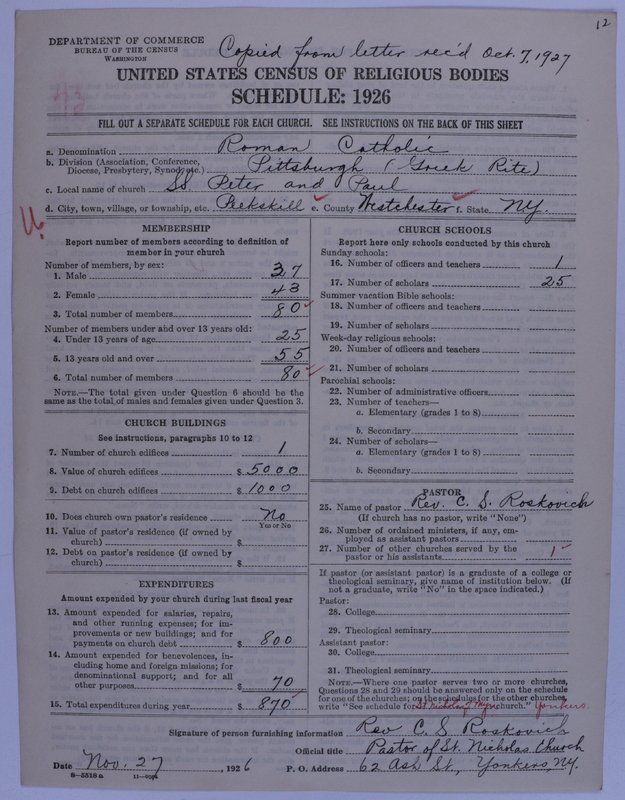 12
DEPARTMENT OF COMMERCE
BUREAU OF THE CENSUS
WASHINGTON
Copied from letter rec'd Oct. 7, 1927
UNITED STATES CENSUS OF RELIGIOUS BODIES
SCHEDULE: 1926
FILL OUT A SEPARATE SCHEDULE FOR EACH CHURCH. SEE INSTRUCTIONS ON THE BACK OF THIS SHEET
a. Denomination Roman Catholic
b. Division (Association, Conference, Diocese, Presbytery, Synod, etc.) Pittsburgh (Greek Rite)
c. Local name of church SS. Peter and Paul
d. City, town, village, or township, etc. Peekskill e. County Westchester f. State N.Y.
MEMBERSHIP
Report number of members according to definition of
member in your church
Number of members, by sex:
1. Male 37
2. Female 43
3. Total number of members 80
Number of members under and over 13 years old:
4. Under 13 years of age 25
5. 13 years old and over 55
6. Total number of members 80
NOTE.—The total given under Question 6 should be
same as the total of males and females given under Question 3.
CHURCH BUILDINGS
See instructions, paragraphs 10 to 12
7. Number of church edifices 1
8. Value of church edifices $ 5000
9. Debt on church edifices $ 1000
10. Does church own pastor's residence No
Yes or No
11. Value of pastor's residence (if owned by
church) $
12. Debt on pastor's residence (if owned by
church) $
EXPENDITURES
Amount expended by your church during last fiscal year
13. Amount expended for salaries, repairs,
and other running expenses; for im-
provements or new buildings; and for
payments on church debt $ 800
14. Amount expended for benevolences, in-
cluding home and foreign missions; for
denominational support; and for all
other purposes $ 70
15. Total expenditures during year $ 870
CHURCH SCHOOLS
Report here only schools conducted by this church
Sunday schools:
16. Number of officers and teachers 1
17. Number of scholars 25
Summer vacation Bible schools:
18. Number of officers and teachers
19. Number of scholars
Week-day religious schools:
20. Number of officers and teachers
21. Number of scholars
Parochial schools:
22. Number of administrative officers
23. Number of teachers—
a. Elementary (grades 1 to 8)
b. Secondary
24. Number of scholars—
a. Elementary (grades 1 to 8)
b. Secondary
PASTOR
25. Name of pastor Rev. C. S. Roskovich
(If church has no pastor, write "None")
26. Number of ordained ministers, if any, em-
ployed as assistant pastors
27. Number of other churches served by the
pastor or his assistants 1
If pastor (or assistant pastor) is a graduate of a college or
theological seminary, give name of institution below. (If
not a graduate, write "No" in the space indicated.)
Pastor:
28. College
29. Theological seminary
Assistant pastor:
30. College
31. Theological seminary
NOTE.—Where one pastor serves two or more churches,
Questions 28 and 29 should be answered only on the schedule
for one of the churches; on the schedules for the other churches,
write "See schedule for St Nicholas of Myra church." Yonkers
Signature of person furnishing information Rev C. S. Roskovich
Official title Pastor of St. Nicholas Church
Date Nov. 27, 1926 P. O. Address 62 Ash St., Yonkers, N.Y.